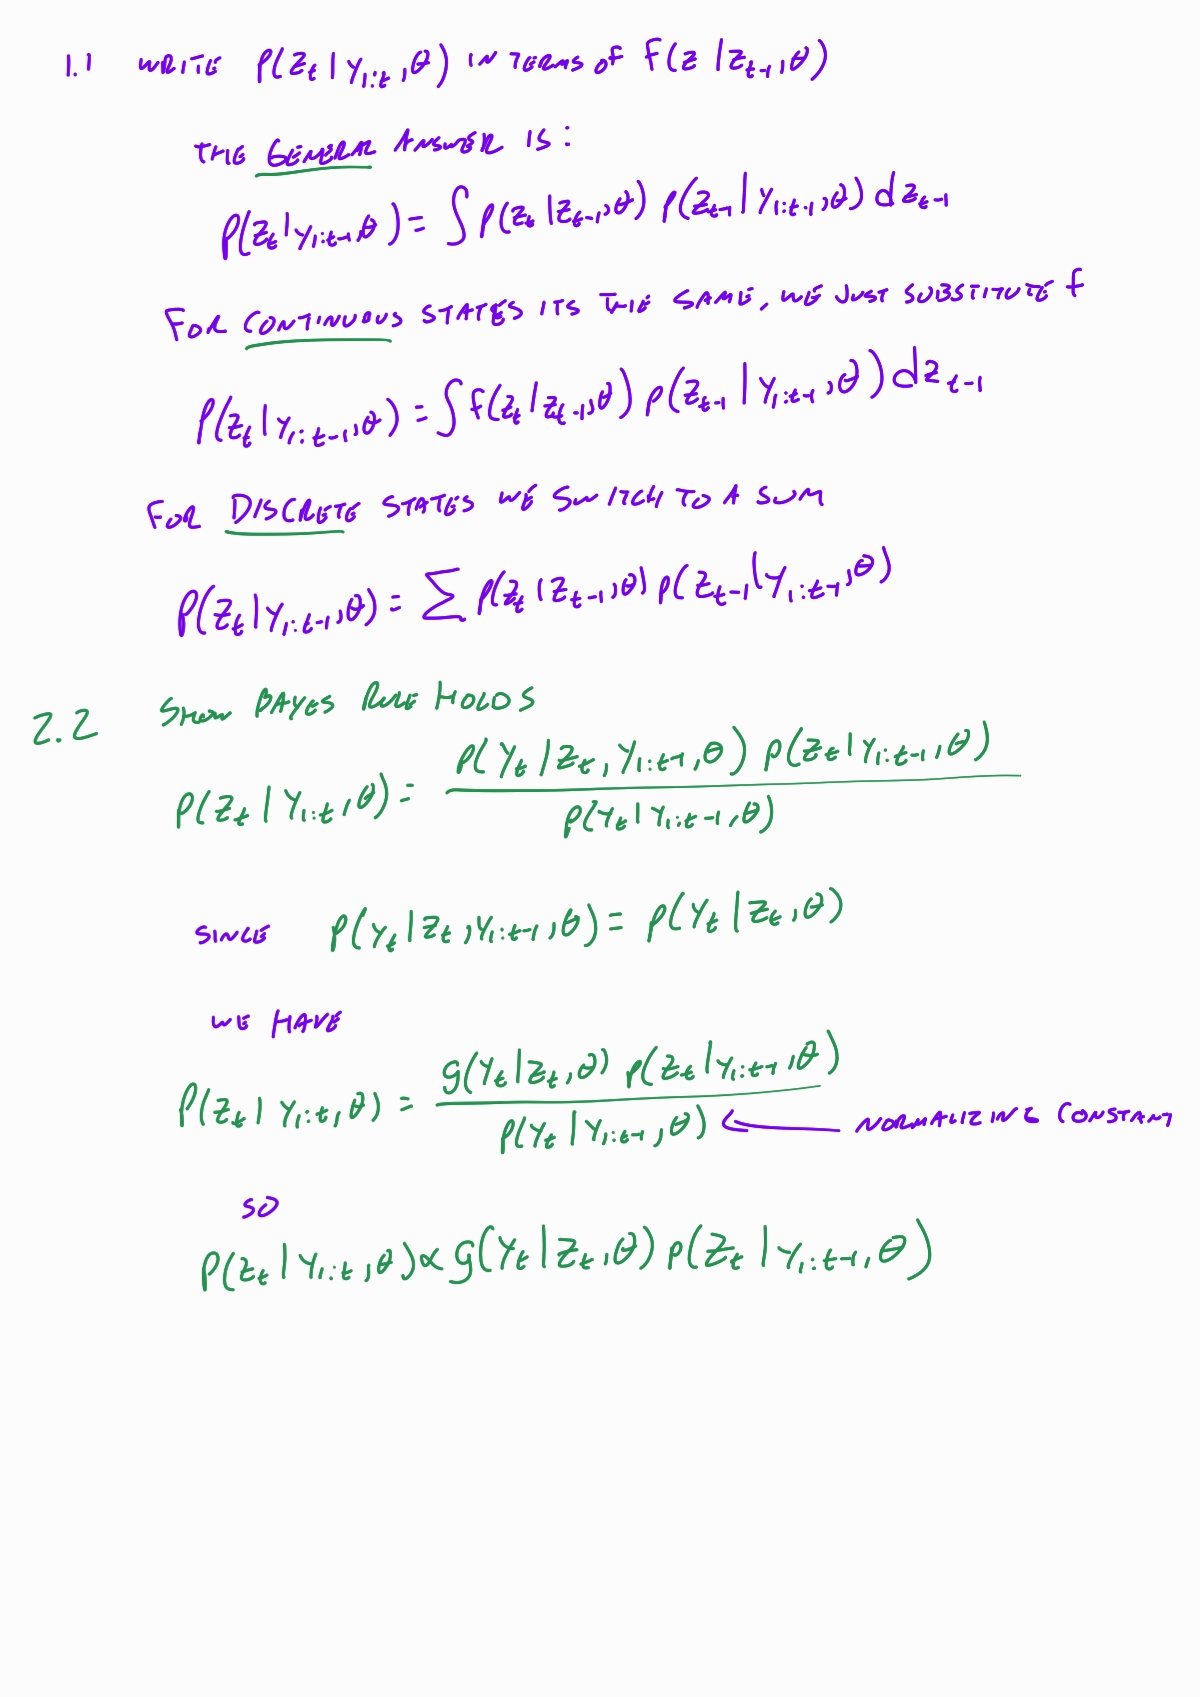 1.1 WRITE P(z_t | y_{1:t}, θ) IN TERMS OF f(z | z_{t-1}, θ)
THE GENERAL ANSWER IS:
P(z_t | y_{1:t-1}, θ) = ∫ p(z_t | z_{t-1}, θ) p(z_{t-1} | y_{1:t-1}, θ) dz_{t-1}
FOR CONTINUOUS STATES ITS THE SAME, WE JUST SUBSTITUTE f
P(z_t | y_{1:t-1}, θ) = ∫ f(z_t | z_{t-1}, θ) p(z_{t-1} | y_{1:t-1}, θ) dz_{t-1}
FOR DISCRETE STATES WE SWITCH TO A SUM
P(z_t | y_{1:t-1}, θ) = ∑ p(z_t | z_{t-1}, θ) p(z_{t-1} | y_{1:t-1}, θ)
2.2 SHOW BAYES RULE HOLDS
P(z_t | y_{1:t}, θ) = p(y_t | z_t, y_{1:t-1}, θ) p(z_t | y_{1:t-1}, θ) / p(y_t | y_{1:t-1}, θ)
SINCE p(y_t | z_t, y_{1:t-1}, θ) = p(y_t | z_t, θ)
WE HAVE
P(z_t | y_{1:t}, θ) = g(y_t | z_t, θ) p(z_t | y_{1:t-1}, θ) / p(y_t | y_{1:t-1}, θ) ← NORMALIZING CONSTANT
SO
P(z_t | y_{1:t}, θ) ∝ g(y_t | z_t, θ) p(z_t | y_{1:t-1}, θ)